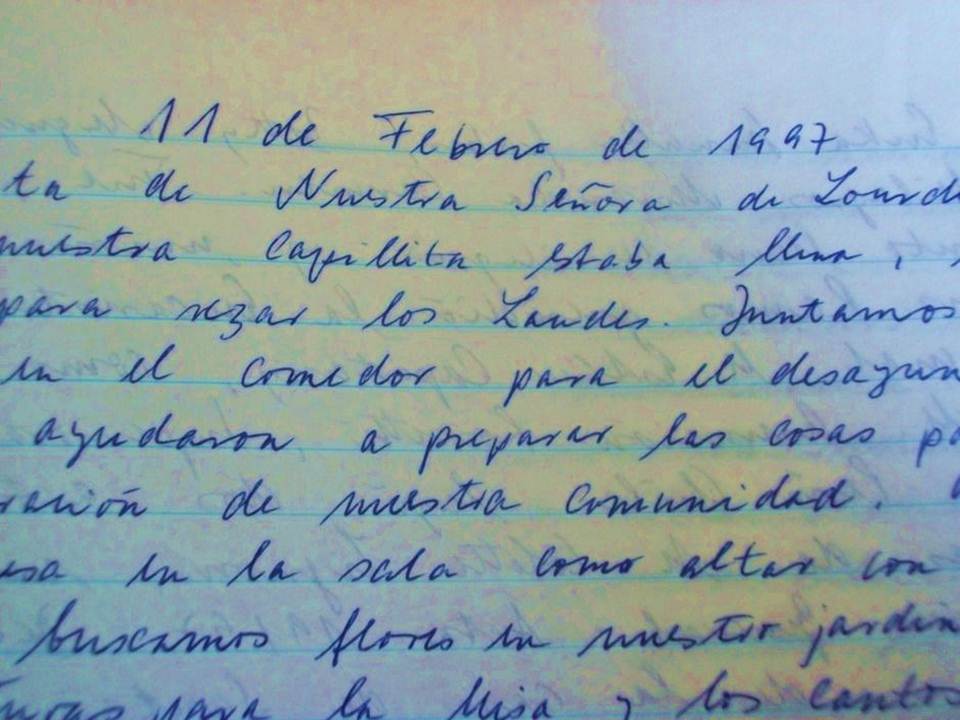 11 de Febrero de 1997
ta de Nuestra Señora de Lourd
nuestra Capillita estaba llena,
para rezar los Laudes. Juntamos
en el comedor para el desayun
ayudaron a preparar las cosas pa
ración de nuestra comunidad.
esa en la sala como altar con
buscamos flores en nuestro jardín
para la Misa y los cantos